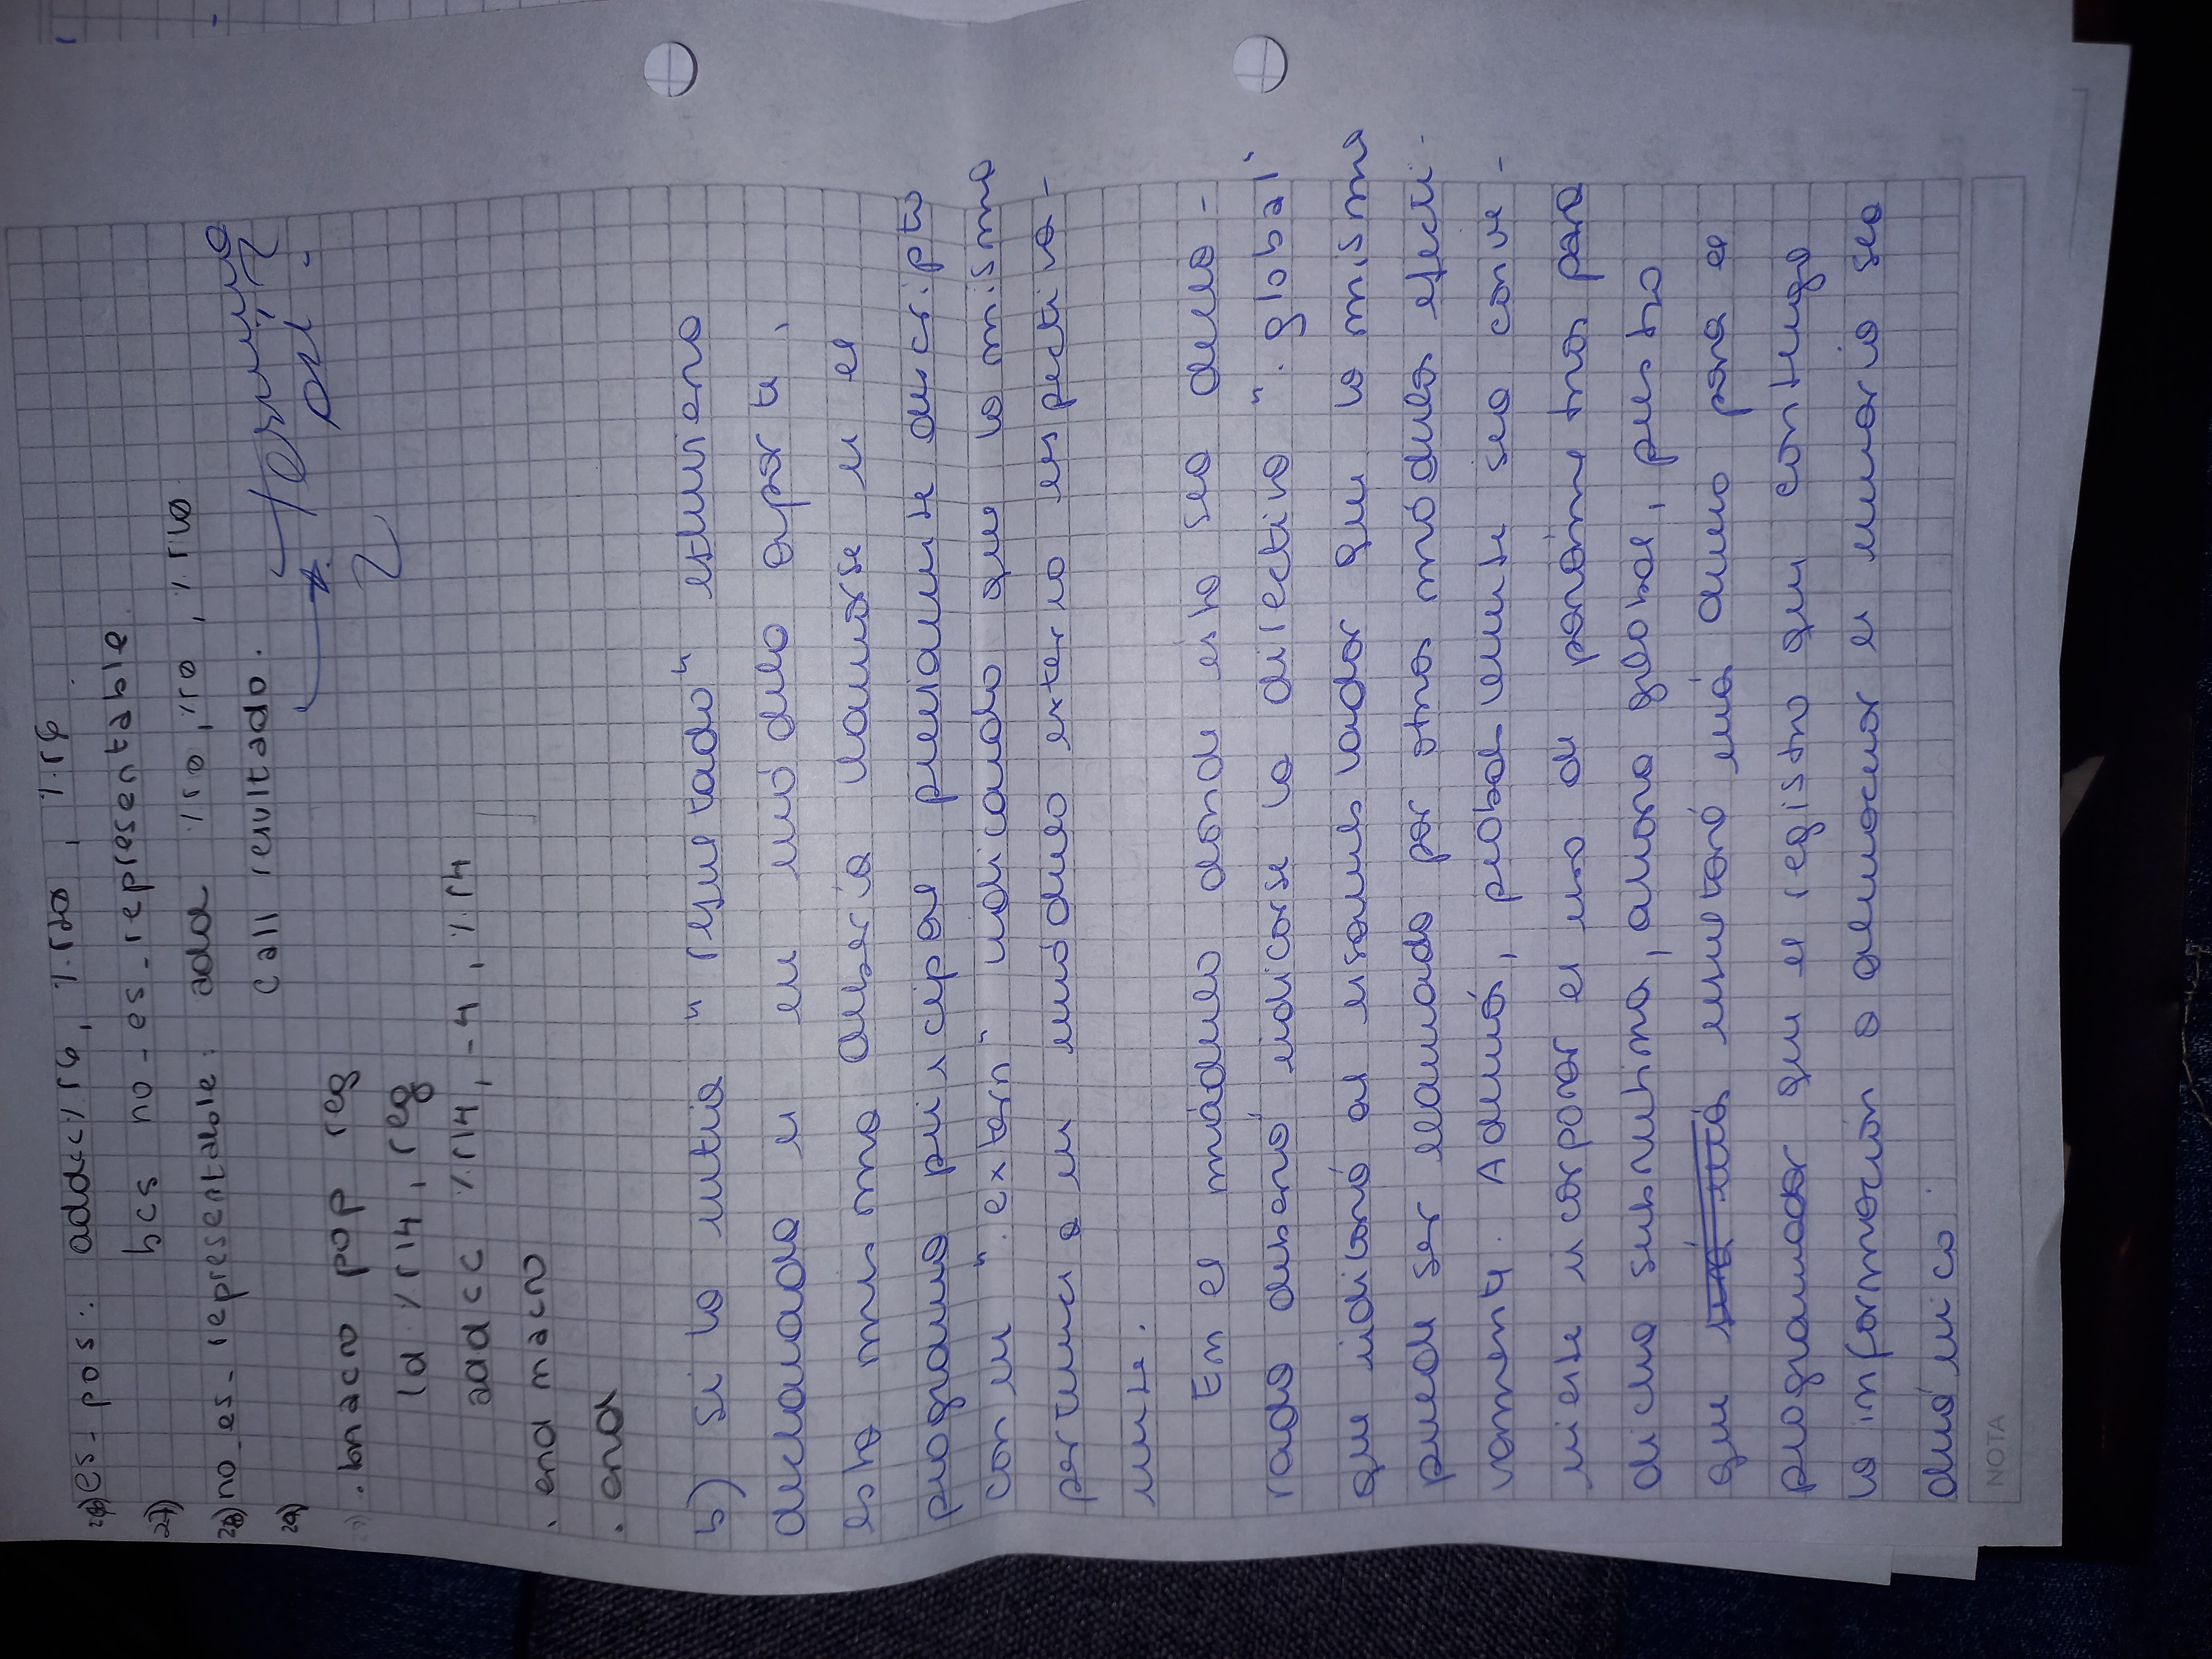 26) es_pos: addcc %r6, %r20, %r6
27) bcs no_es_representable
28) no_es_representable: add %r0, %r0, %r10
29) call resultado.
→ termina así?
2
.macro pop reg
ld %r14, reg
addcc %r14, -4, %r4
.end macro
.end
b) Si la rutina "resultado" estuviera
declarada en un módulo aparte,
esta misma debería llamarse en el
programa principal previamente descripto
con un ".extern" indicando que la misma
pertenencia a un módulo externo respectiva-
mente.
En el módulo donde ésta sea decla-
rada deberá indicarse la directiva ".global"
que indicará al ensamblador que la misma
puede ser llamada por otros módulos efecti-
vamente. Además, probablemente sea conve-
niente incorporar el uso de parámetros para
dicha subrutina, ahora global, puesto
que será más resultará más claro para el
programador que el registro que contenga
la información a almacenar en memoria sea
dinámico.
NOTA